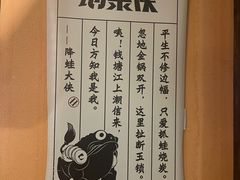 平生不修边幅，只爱抓蛙烧炭。
忽地金锅双开，这里扯断玉锁。
咦！钱塘江上潮信来，
今日方知我是我。
——降蛙大侠